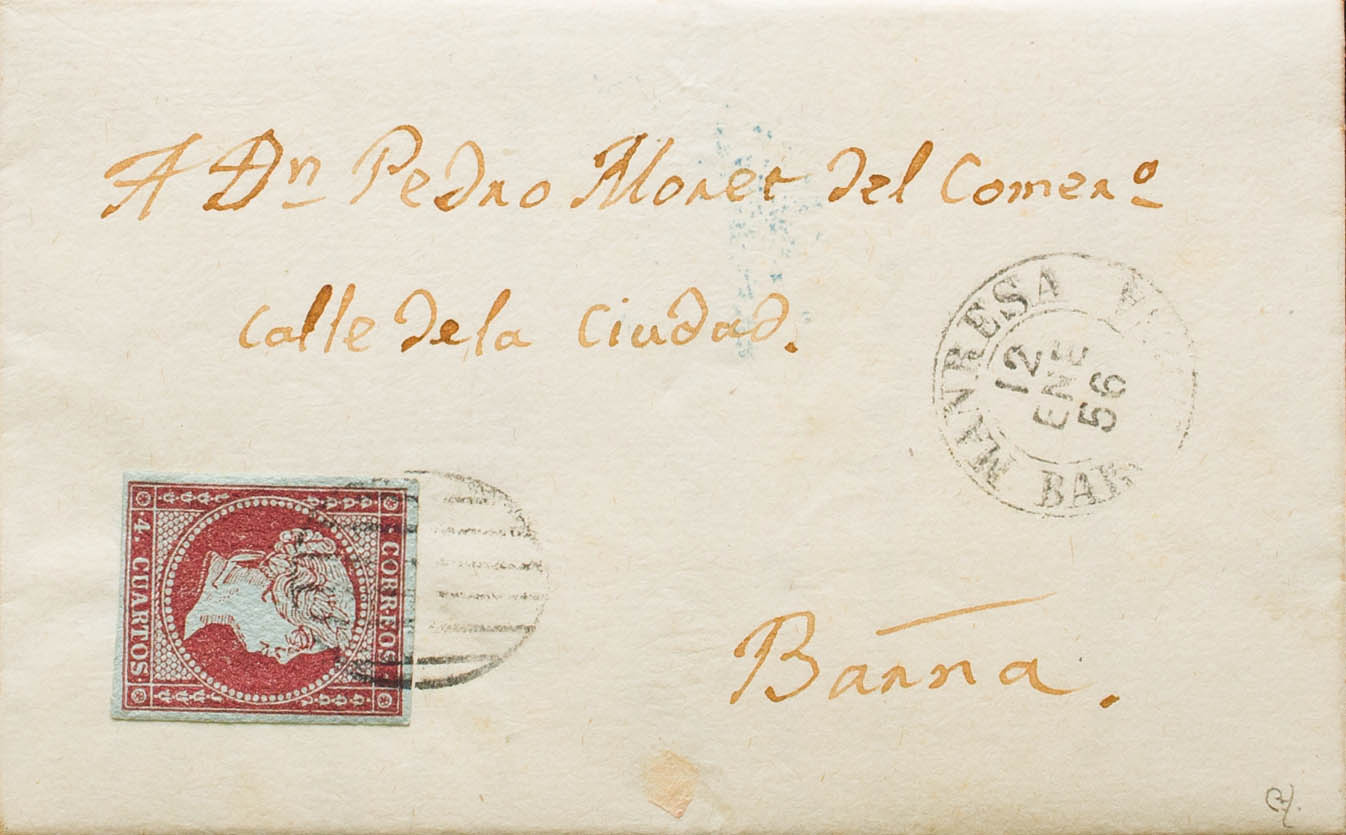 A Dn Pedro Moret del Comerº
Calle de la Ciudad.
MANRESA
12
ENE
56
BAR
CORREOS
4. CUARTOS
Barna.